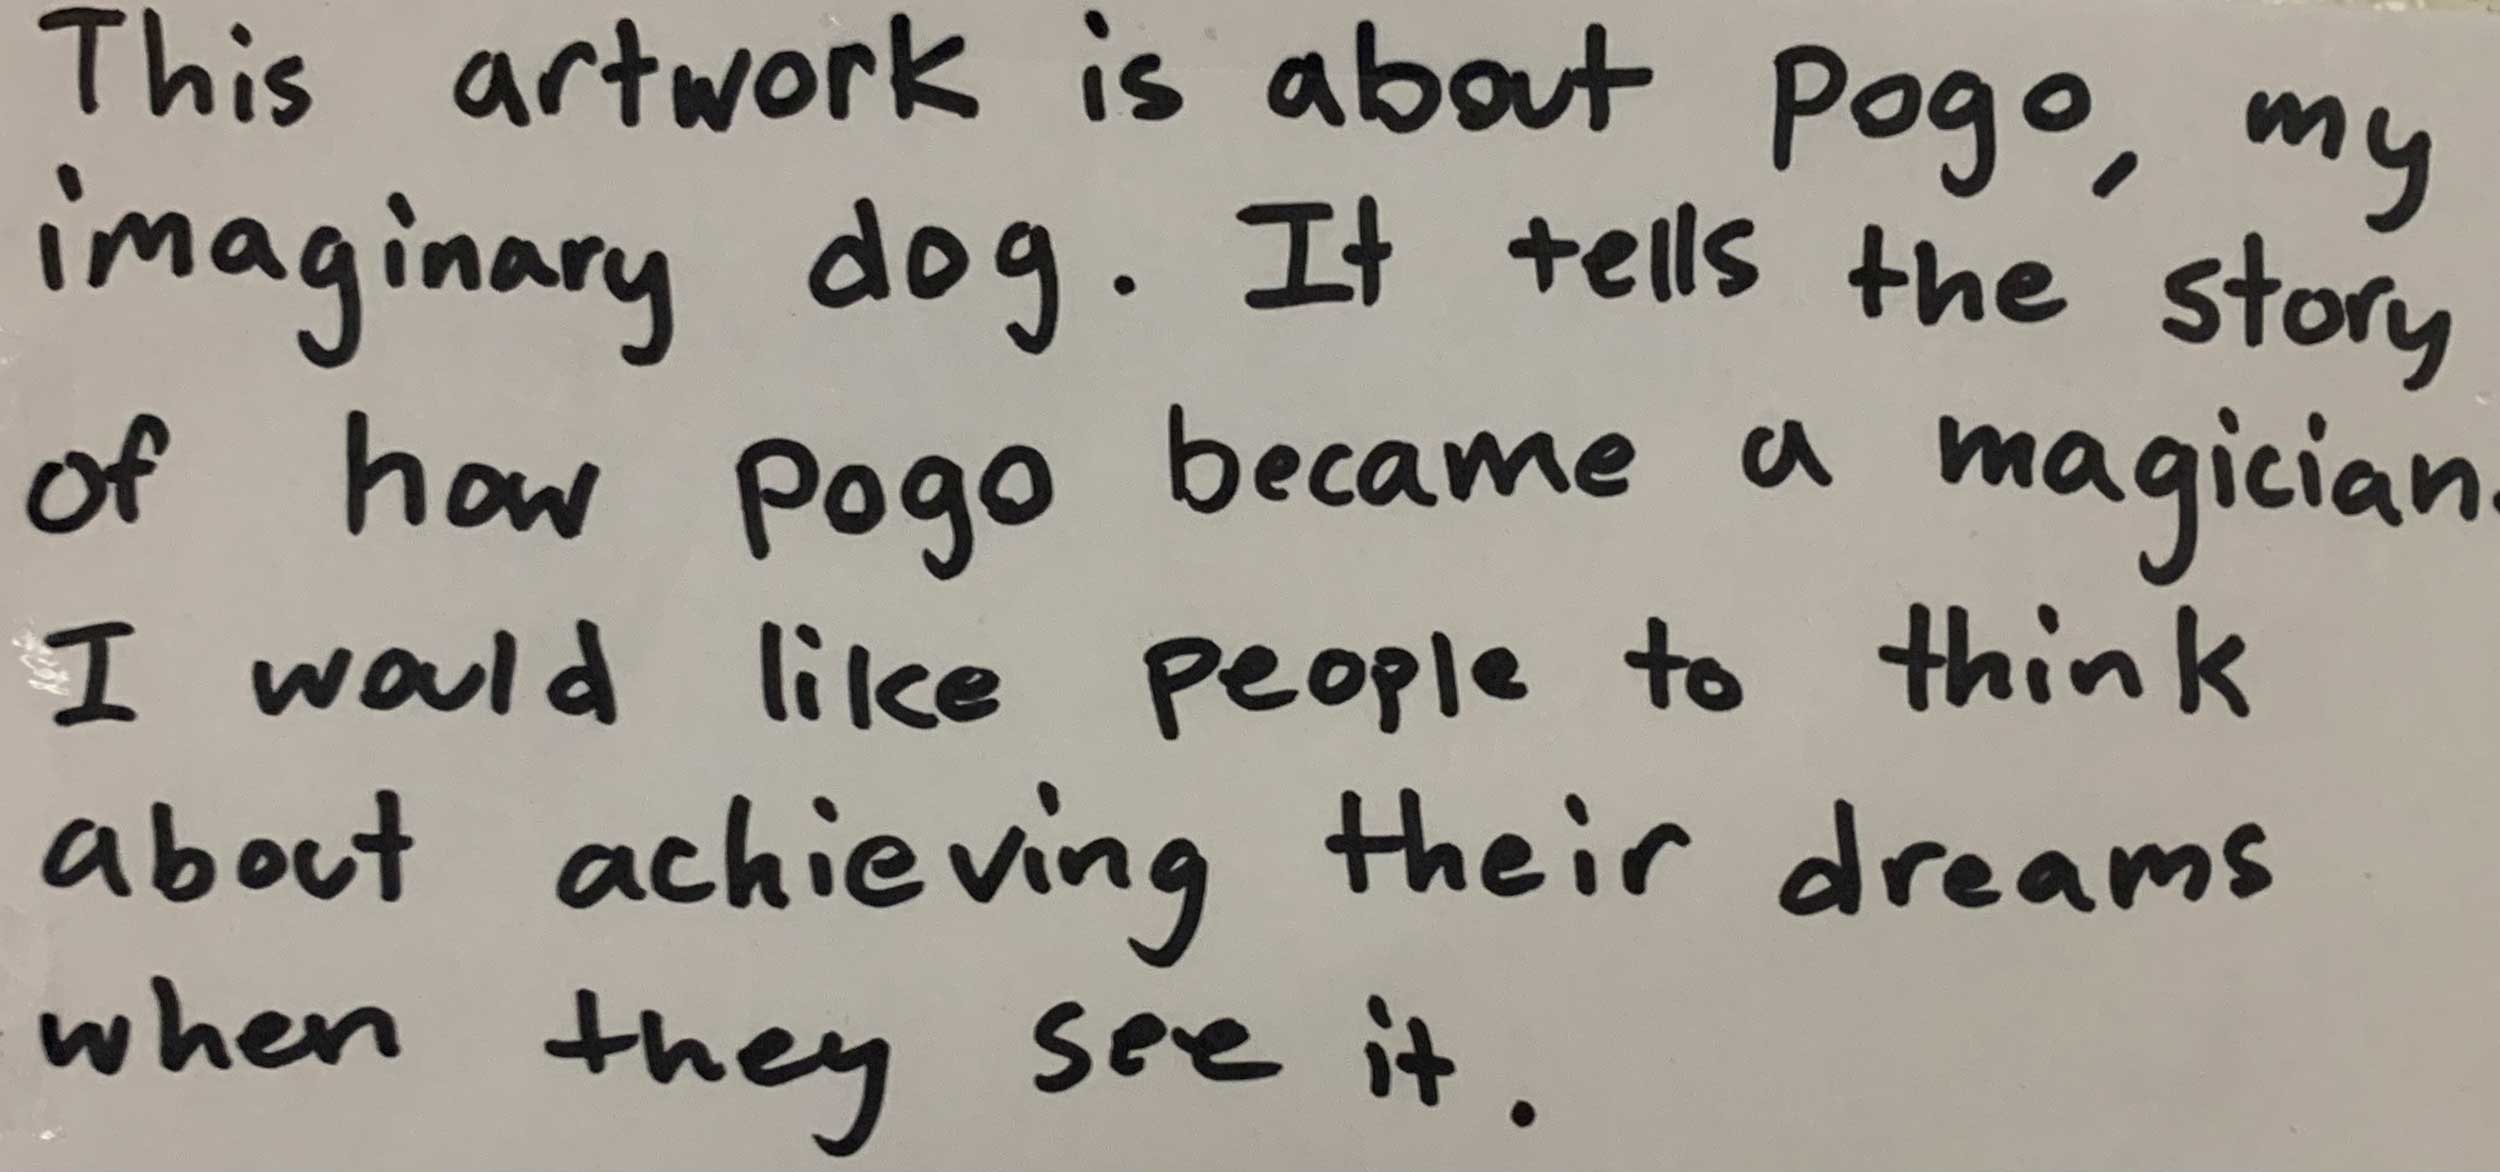 This artwork is about Pogo, my
imaginary dog. It tells the story
of how Pogo became a magician.
I would like people to think
about achieving their dreams
when they see it.